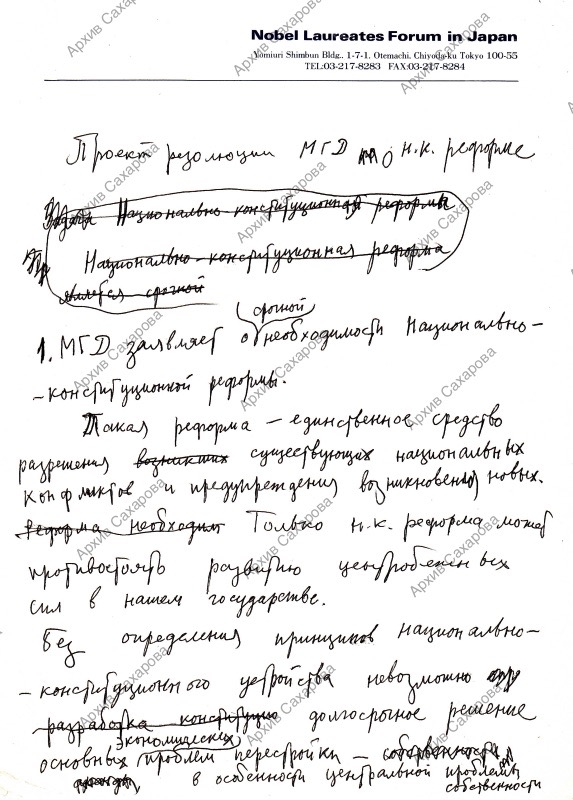 Nobel Laureates Forum in Japan
Yomiuri Shimbun Bldg., 1-7-1, Otemachi, Chiyoda-ku Tokyo 100-55
TEL:03-217-8283 FAX:03-217-8284
Проект резолюции МГД по н.к. реформе
Задача Национально-конституционной реформы
Национально-конституционная реформа
является срочной
срочной
1. МГД заявляет о необходимости Национально-
-конституционной реформы.
Такая реформа – единственное средство
разрешения возникших существующих национальных
конфликтов и предупреждения возникновения новых.
Реформа необходим Только н.к. реформа может
противостоять развитию центробежных
сил в нашем государстве.
Без определения принципов национально-
-конституционного устройства невозможно
разработка конституцию долгосрочное решение
экономических
основных проблем перестройки – собственности
в особенности центральной проблемы
собственности
Архив Сахарова